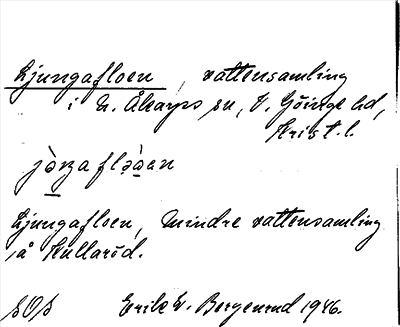 Ljungafloen, vattensamling
i N. Åkarps sn, V. Göinge hd,
Krist. l.
Ljungafloen, mindre vattensamling
på Kullaröd.
SOS Erik W. Bergenrud 1946.